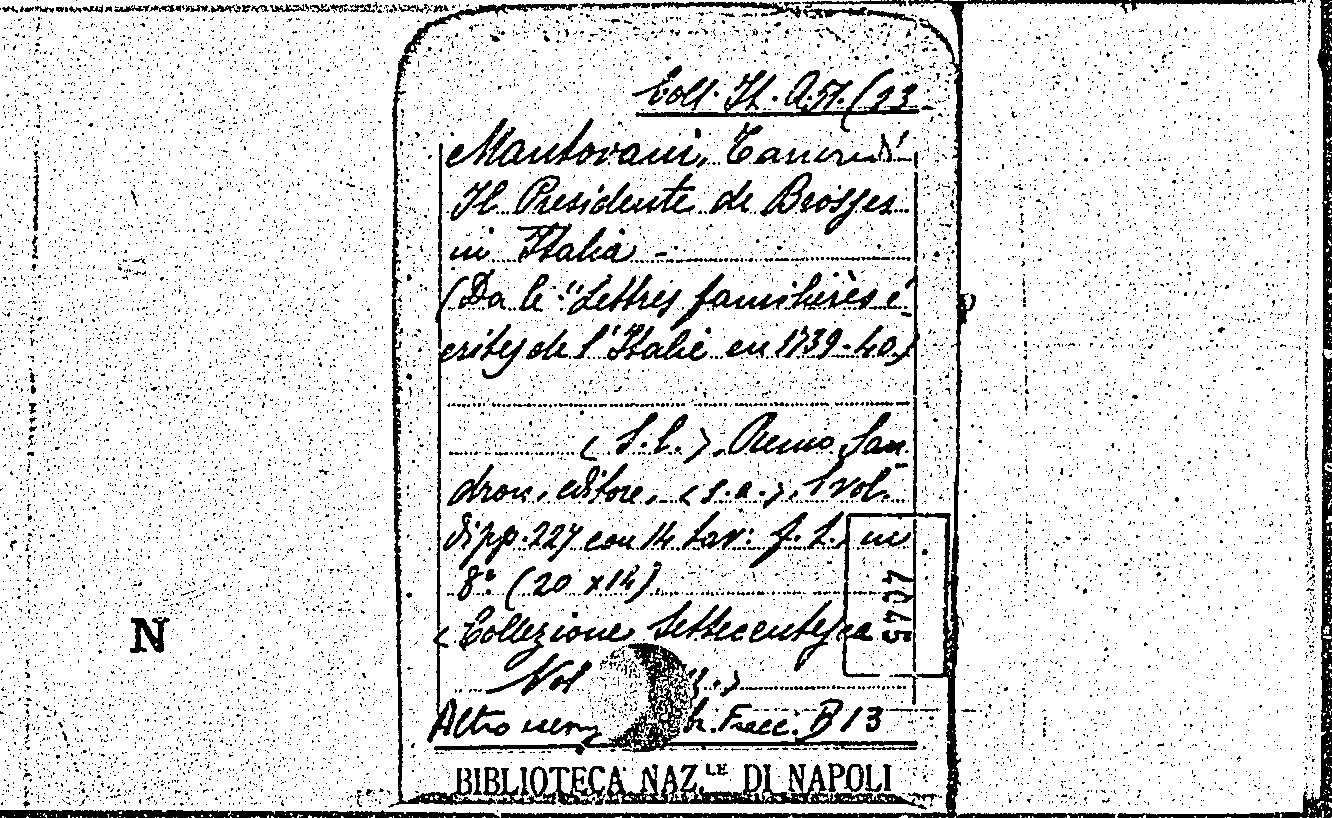 Coll. It. A. 51. (23.
Mantovani, Tancredi
Il Presidente de Brosses
in Italia -
(Da le "Lettres familières é-
crites de l'Italie en 1739-40.)
<S. l.>, Remo San-
dron, editore, <s. a.>, 1 vol.
di pp. 227 con 14 tav: f. t., in
8° (20 x 14).
<Collezione Settecentesca
Vol
Altro B 13
BIBLIOTECA NAZ.LE DI NAPOLI
N
4045